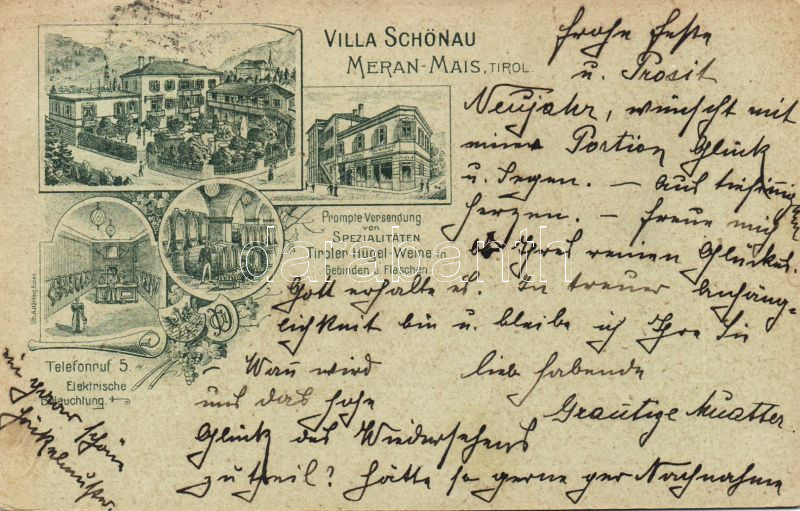 VILLA SCHÖNAU
MERAN-MAIS, TIROL
Prompte Versendung
von
SPEZIALITÄTEN
Tiroler Hügel-Weine in
Gebinden u. Flaschen.
Telefonruf 5.
Elektrische
Beleuchtung.
darabanth
frohe Feste
u. Prosit
Neujahr, wünscht mit
einer Portion Glück
u. Segen. – Aus tiefinnigem
Herzen. – freue mich
Ihres reinen Glückes.
Gott erhalte es. In treuer Anhäng-
lichkeit bin u. bleibe ich Ihre Sie
lieb habende
Wann wird
uns das hohe
Glück des Wiedersehens
zu theil? hätte so gerne per Nachnahme
schöne